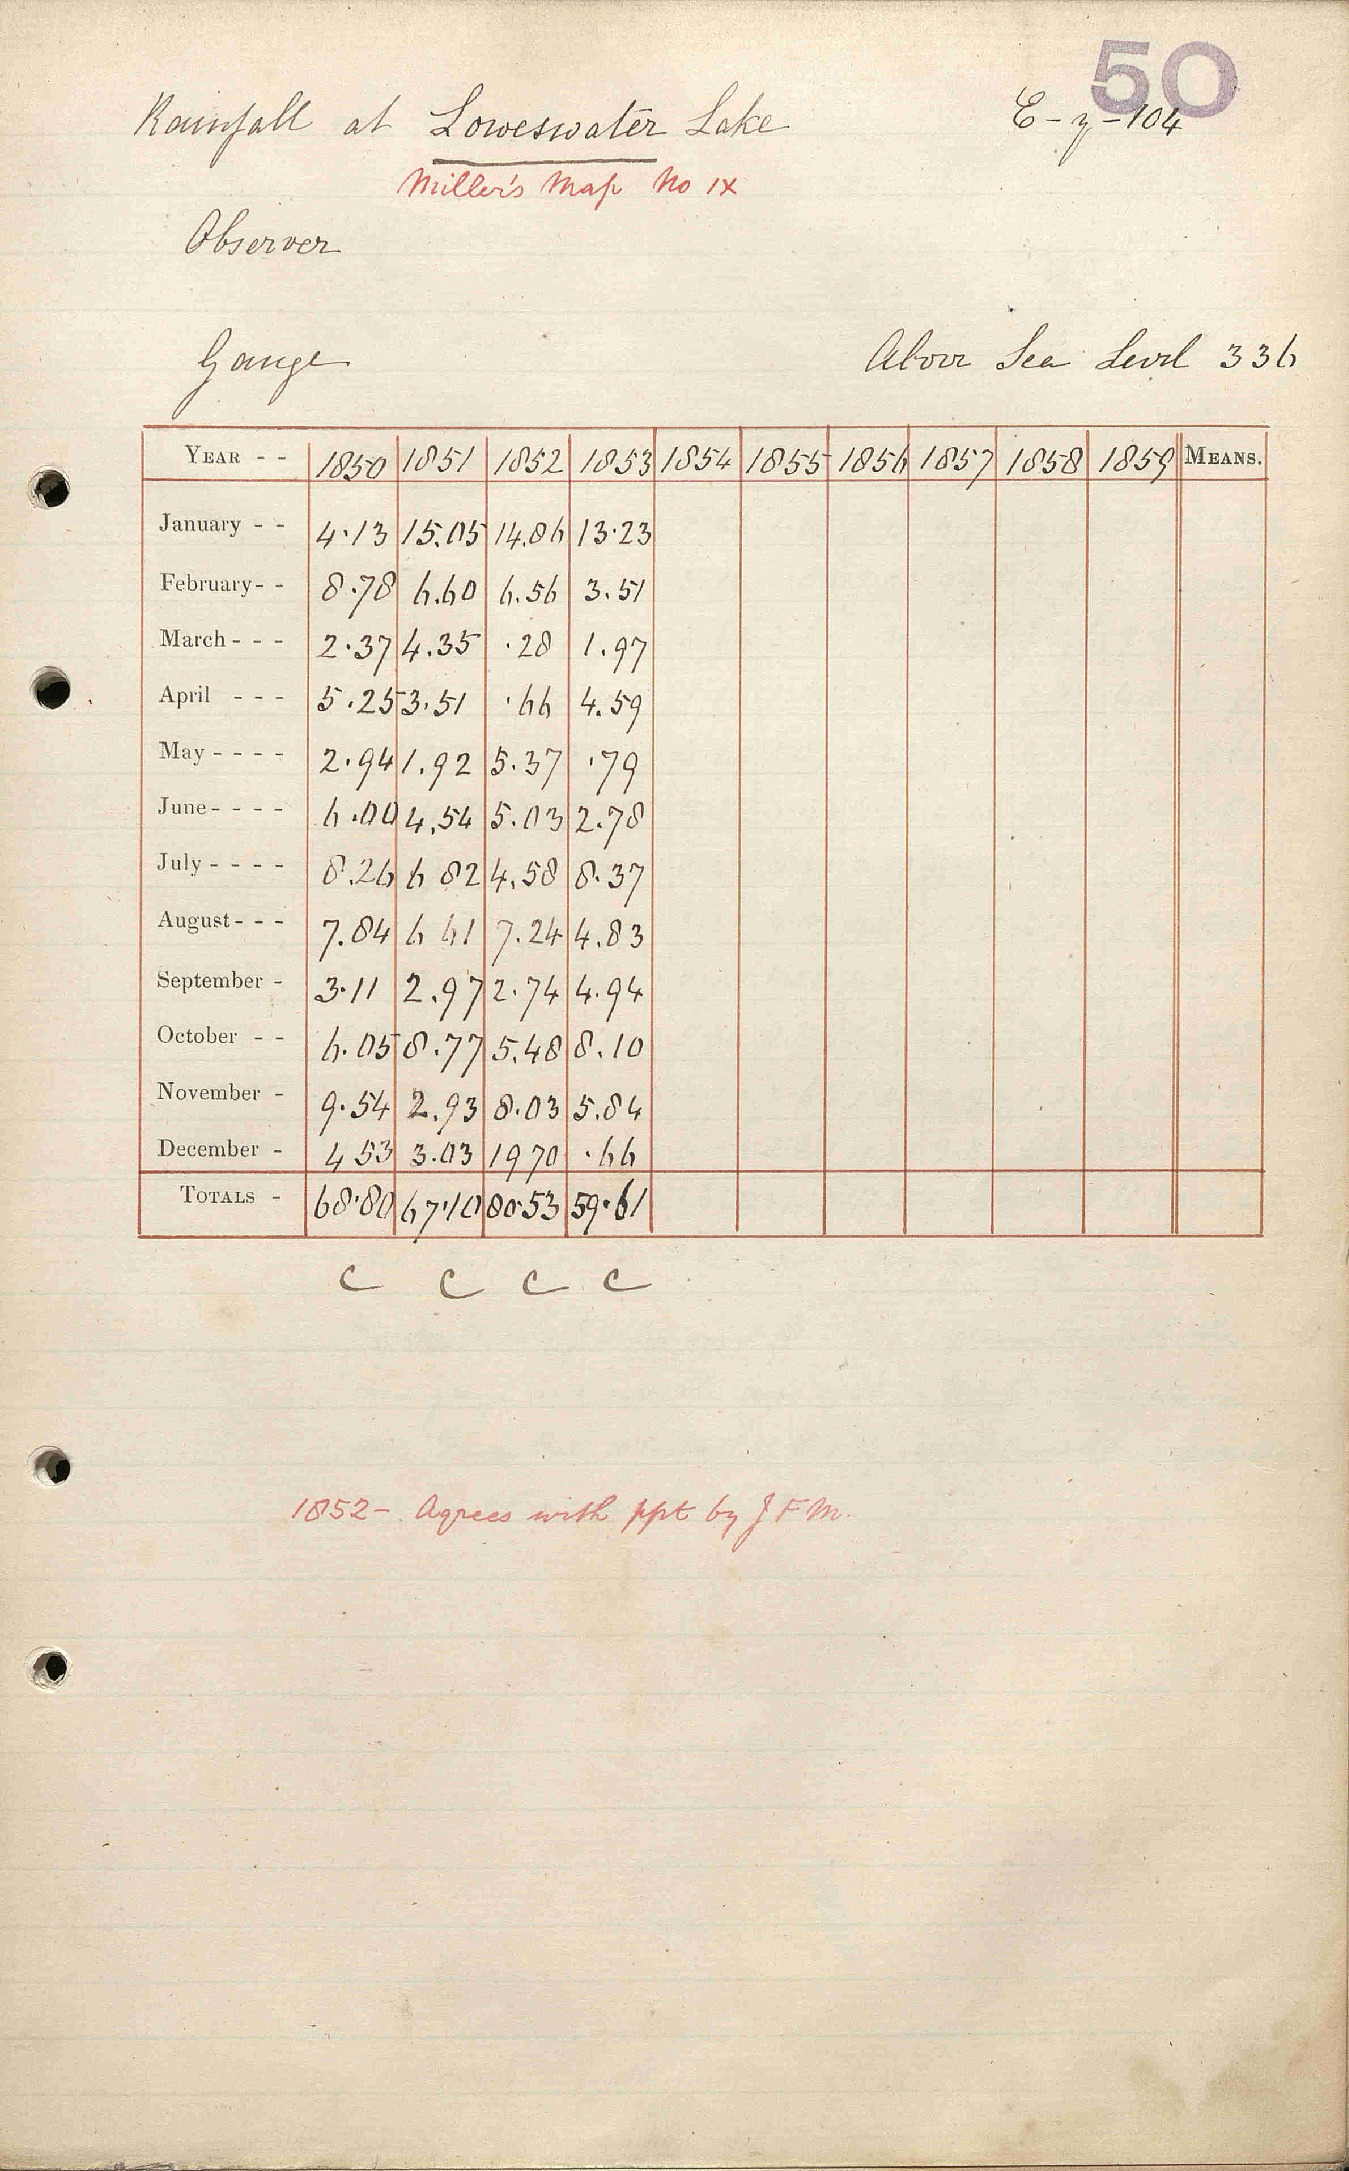 50
Rainfall at Loweswater Lake E-y-104
Miller's Map No IX
Observer
Gauge Above Sea Level 336
YEAR - - 1850 1851 1852 1853 1854 1855 1856 1857 1858 1859 MEANS.
January - - 4.13 15.05 14.86 13.23
February - - 8.78 6.60 6.56 3.51
March - - - 2.37 4.35 .28 1.97
April - - - 5.25 3.51 .66 4.59
May - - - - 2.94 1.92 5.37 .79
June - - - - 6.00 4.54 5.03 2.78
July - - - - 8.26 6 82 4.58 8.37
August - - - 7.84 6 61 7.24 4.83
September - 3.11 2.97 2.74 4.94
October - - 6.05 8.77 5.48 8.10
November - 9.54 2.93 8.03 5.84
December - 4 53 3.03 19 70 .66
TOTALS - 68.80 67.10 80.53 59.61
C C C C
1852 - Agrees with ppt by J F M.